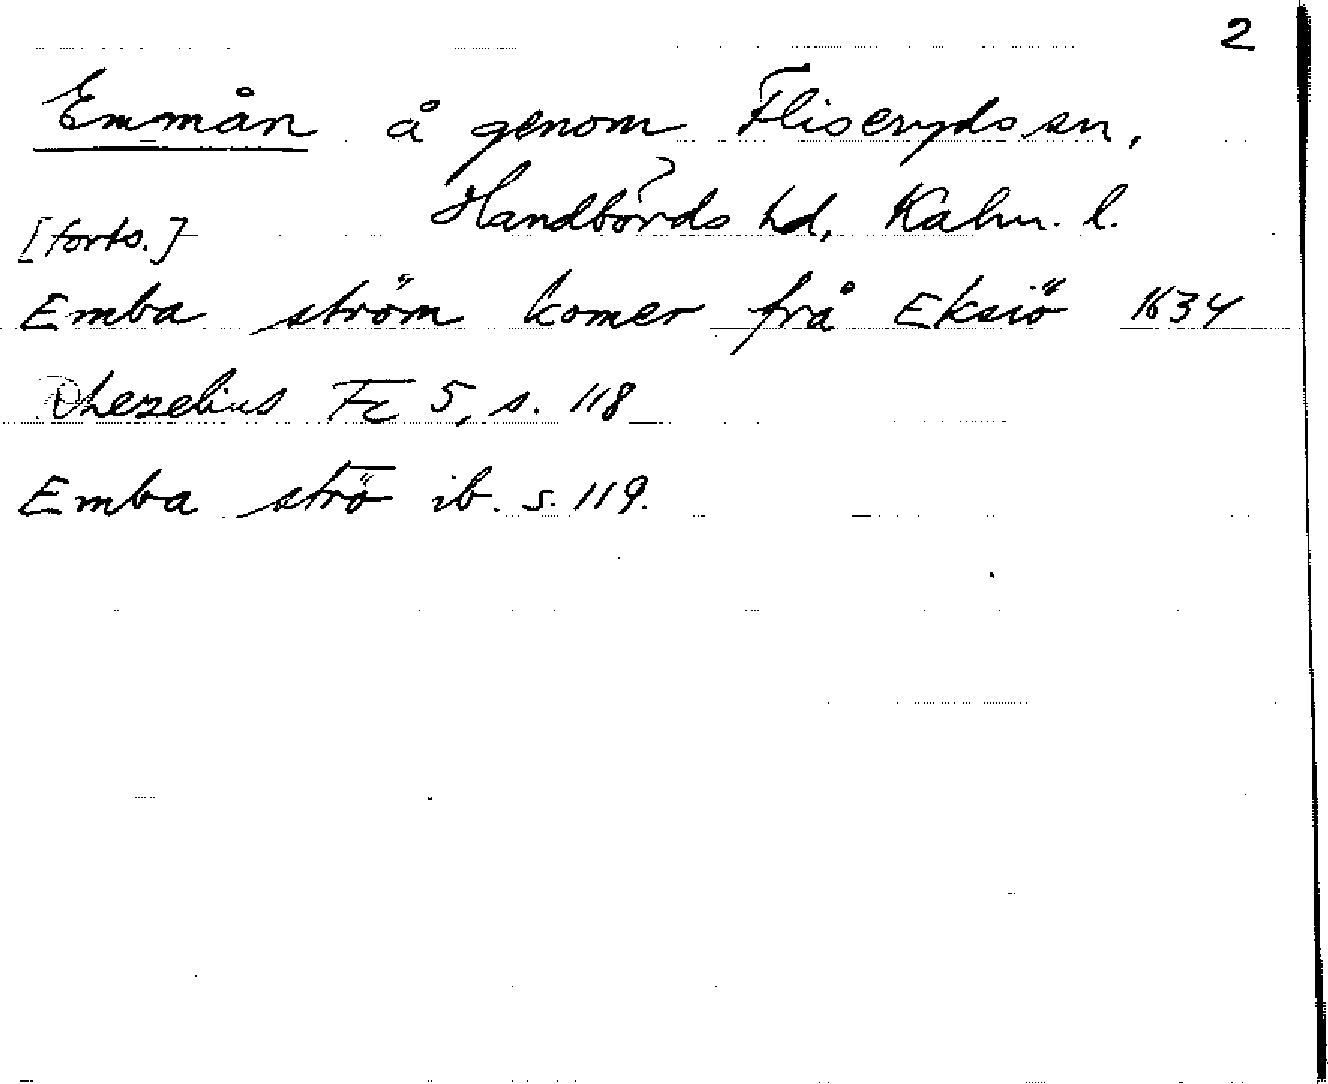 2
Emmån å genom Fliseryds sn,
Handbörds hd, Kalm. l.
[forts.]
Emba ström komer frå Eksiö 1634
Rhezelius Fc 5, s. 118
Emba strö ib. s. 119.